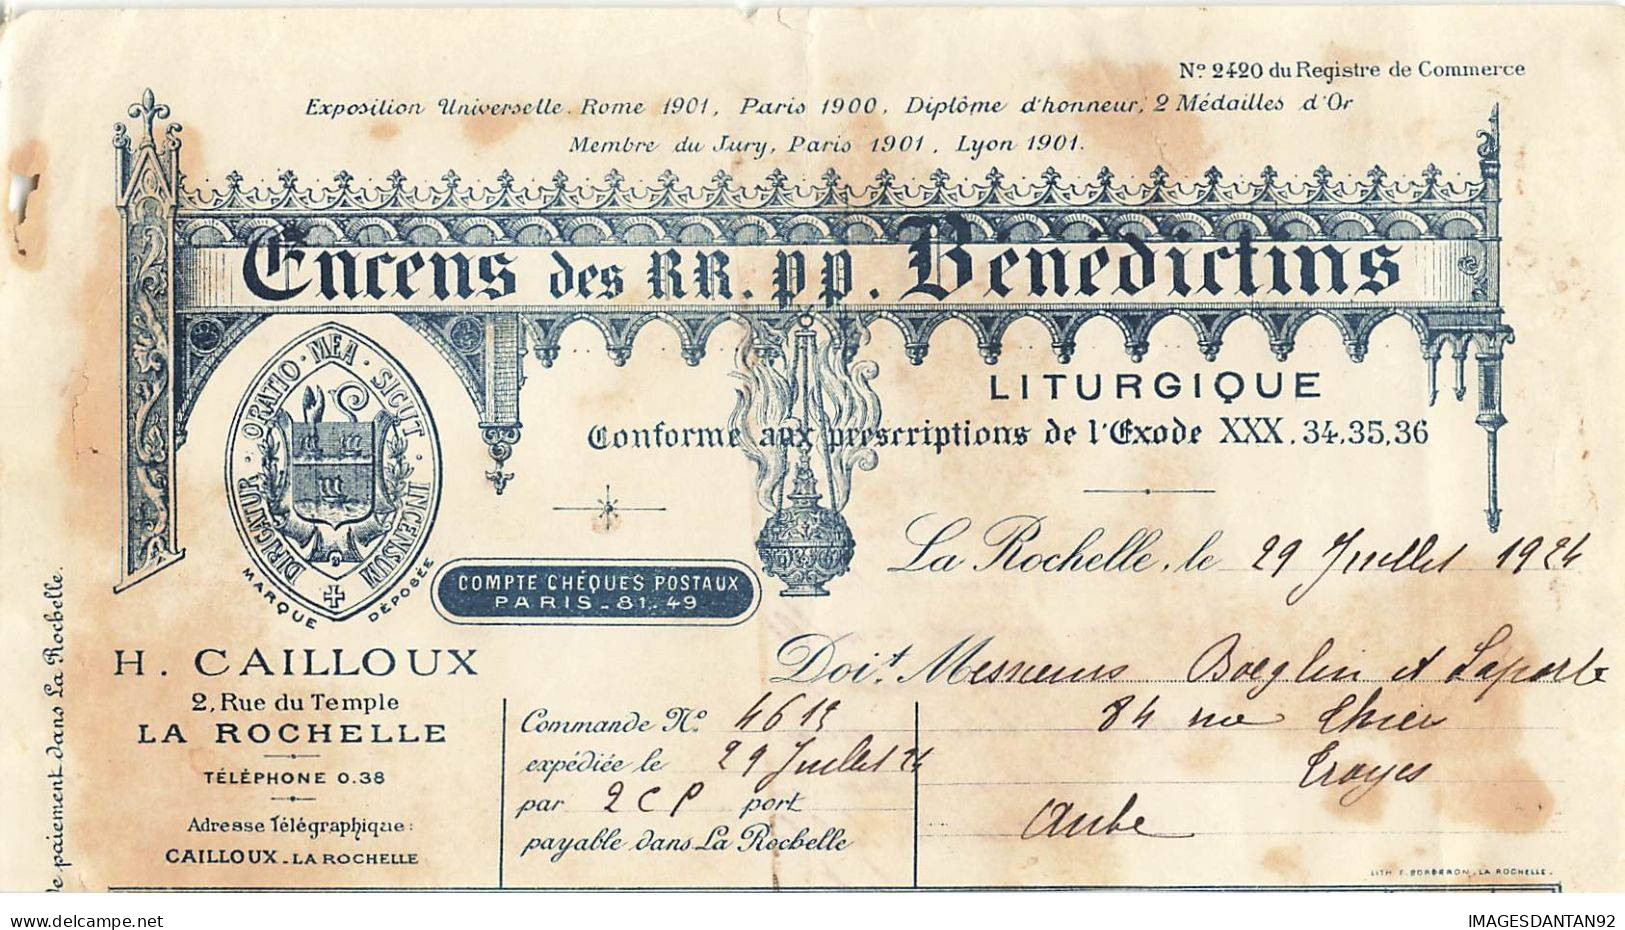 Nº 2420 du Registre de Commerce
Exposition Universelle. Rome 1901, Paris 1900, Diplôme d'honneur, 2 Médailles d'Or
Membre du Jury, Paris 1901, Lyon 1901.
Encens des RR. PP. Bénédictins
DIRIGATUR · ORATIO · MEA · SICUT · INCENSUM
MARQUE DÉPOSÉE
LITURGIQUE
Conforme aux prescriptions de l'Exode XXX. 34, 35, 36
COMPTE CHÈQUES POSTAUX
PARIS - 81-49
La Rochelle, le 29 Juillet 1924
H. CAILLOUX
2, Rue du Temple
LA ROCHELLE
TÉLÉPHONE 0.38
Adresse Télégraphique:
CAILLOUX - LA ROCHELLE
Doit. Messieurs Boeglin et Laporte
84 rue Thiers
Troyes
Aube
Commande Nº 4615
expédiée le 29 Juillet 24
par 2 CP port
payable dans La Rochelle
de paiement dans La Rochelle.
LITH. F. BORDERON, LA ROCHELLE.
delcampe.net
IMAGESDANTAN92